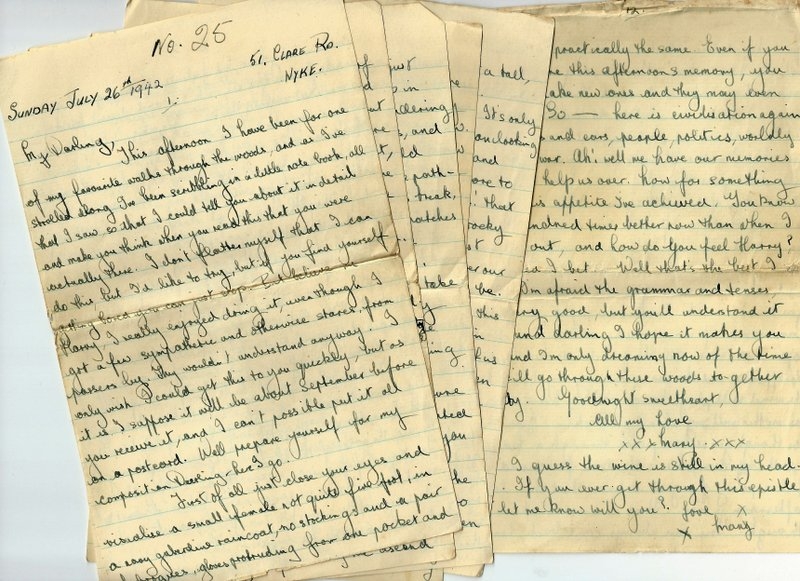 No. 25
51. CLARE RD.
NYKE.
SUNDAY JULY 26TH 1942
1.
My Darling,
This afternoon I have been for one
of my favourite walks through the woods, and as I've
strolled along I've been scribbling in a little note book, all
that I saw, so that I could tell you about it in detail
and make you think when you read this that you were
actually there. I don't flatter myself that I can
do this but I'd like to try, but if you find yourself
getting bored you can just stop. But believe me
Harry I really enjoyed doing it, even though I
got a few sympathetic and otherwise stares, from
passers by. They wouldn't understand anyway. I
only wish I could get this to you quickly, but as
it is I suppose it will be about September before
you receive it, and I can't possible put it all
on a postcard. Well prepare yourself for my
composition Dearling - here I go.
First of all just close your eyes and
visualise a small female not quite five foot, in
a navy gaberdine raincoat, no stockings and a pair
of brogues, gloves protruding from one pocket and
of
just
in
dering
and
path-
break,
patches
take
ing
you
he
second
a tall,
It's only
onlooking
and
ore to
that
rocky
our
be.
this
12.
practically the same. Even if you
this afternoons memory, you
ake new ones and they may even
So — here is civilisation again
and cars, people, politics, worldly
war. Ah! well we have our memories
help us over. Now for something
appetite I've achieved. You know
ndred times better now than when I
out, and how do you feel Harry?
I bet. Well that's the best I
I'm afraid the grammar and tenses
very good, but you'll understand it
and darling I hope it makes you
and I'm only dreaming now of the time
ll go through these woods to-gether
by. Goodnight sweetheart,
All my Love
xxx Mary. xxx
I guess the wine is still in my head.
If you ever get through this epistle
let me know will you? Love x
x Mary